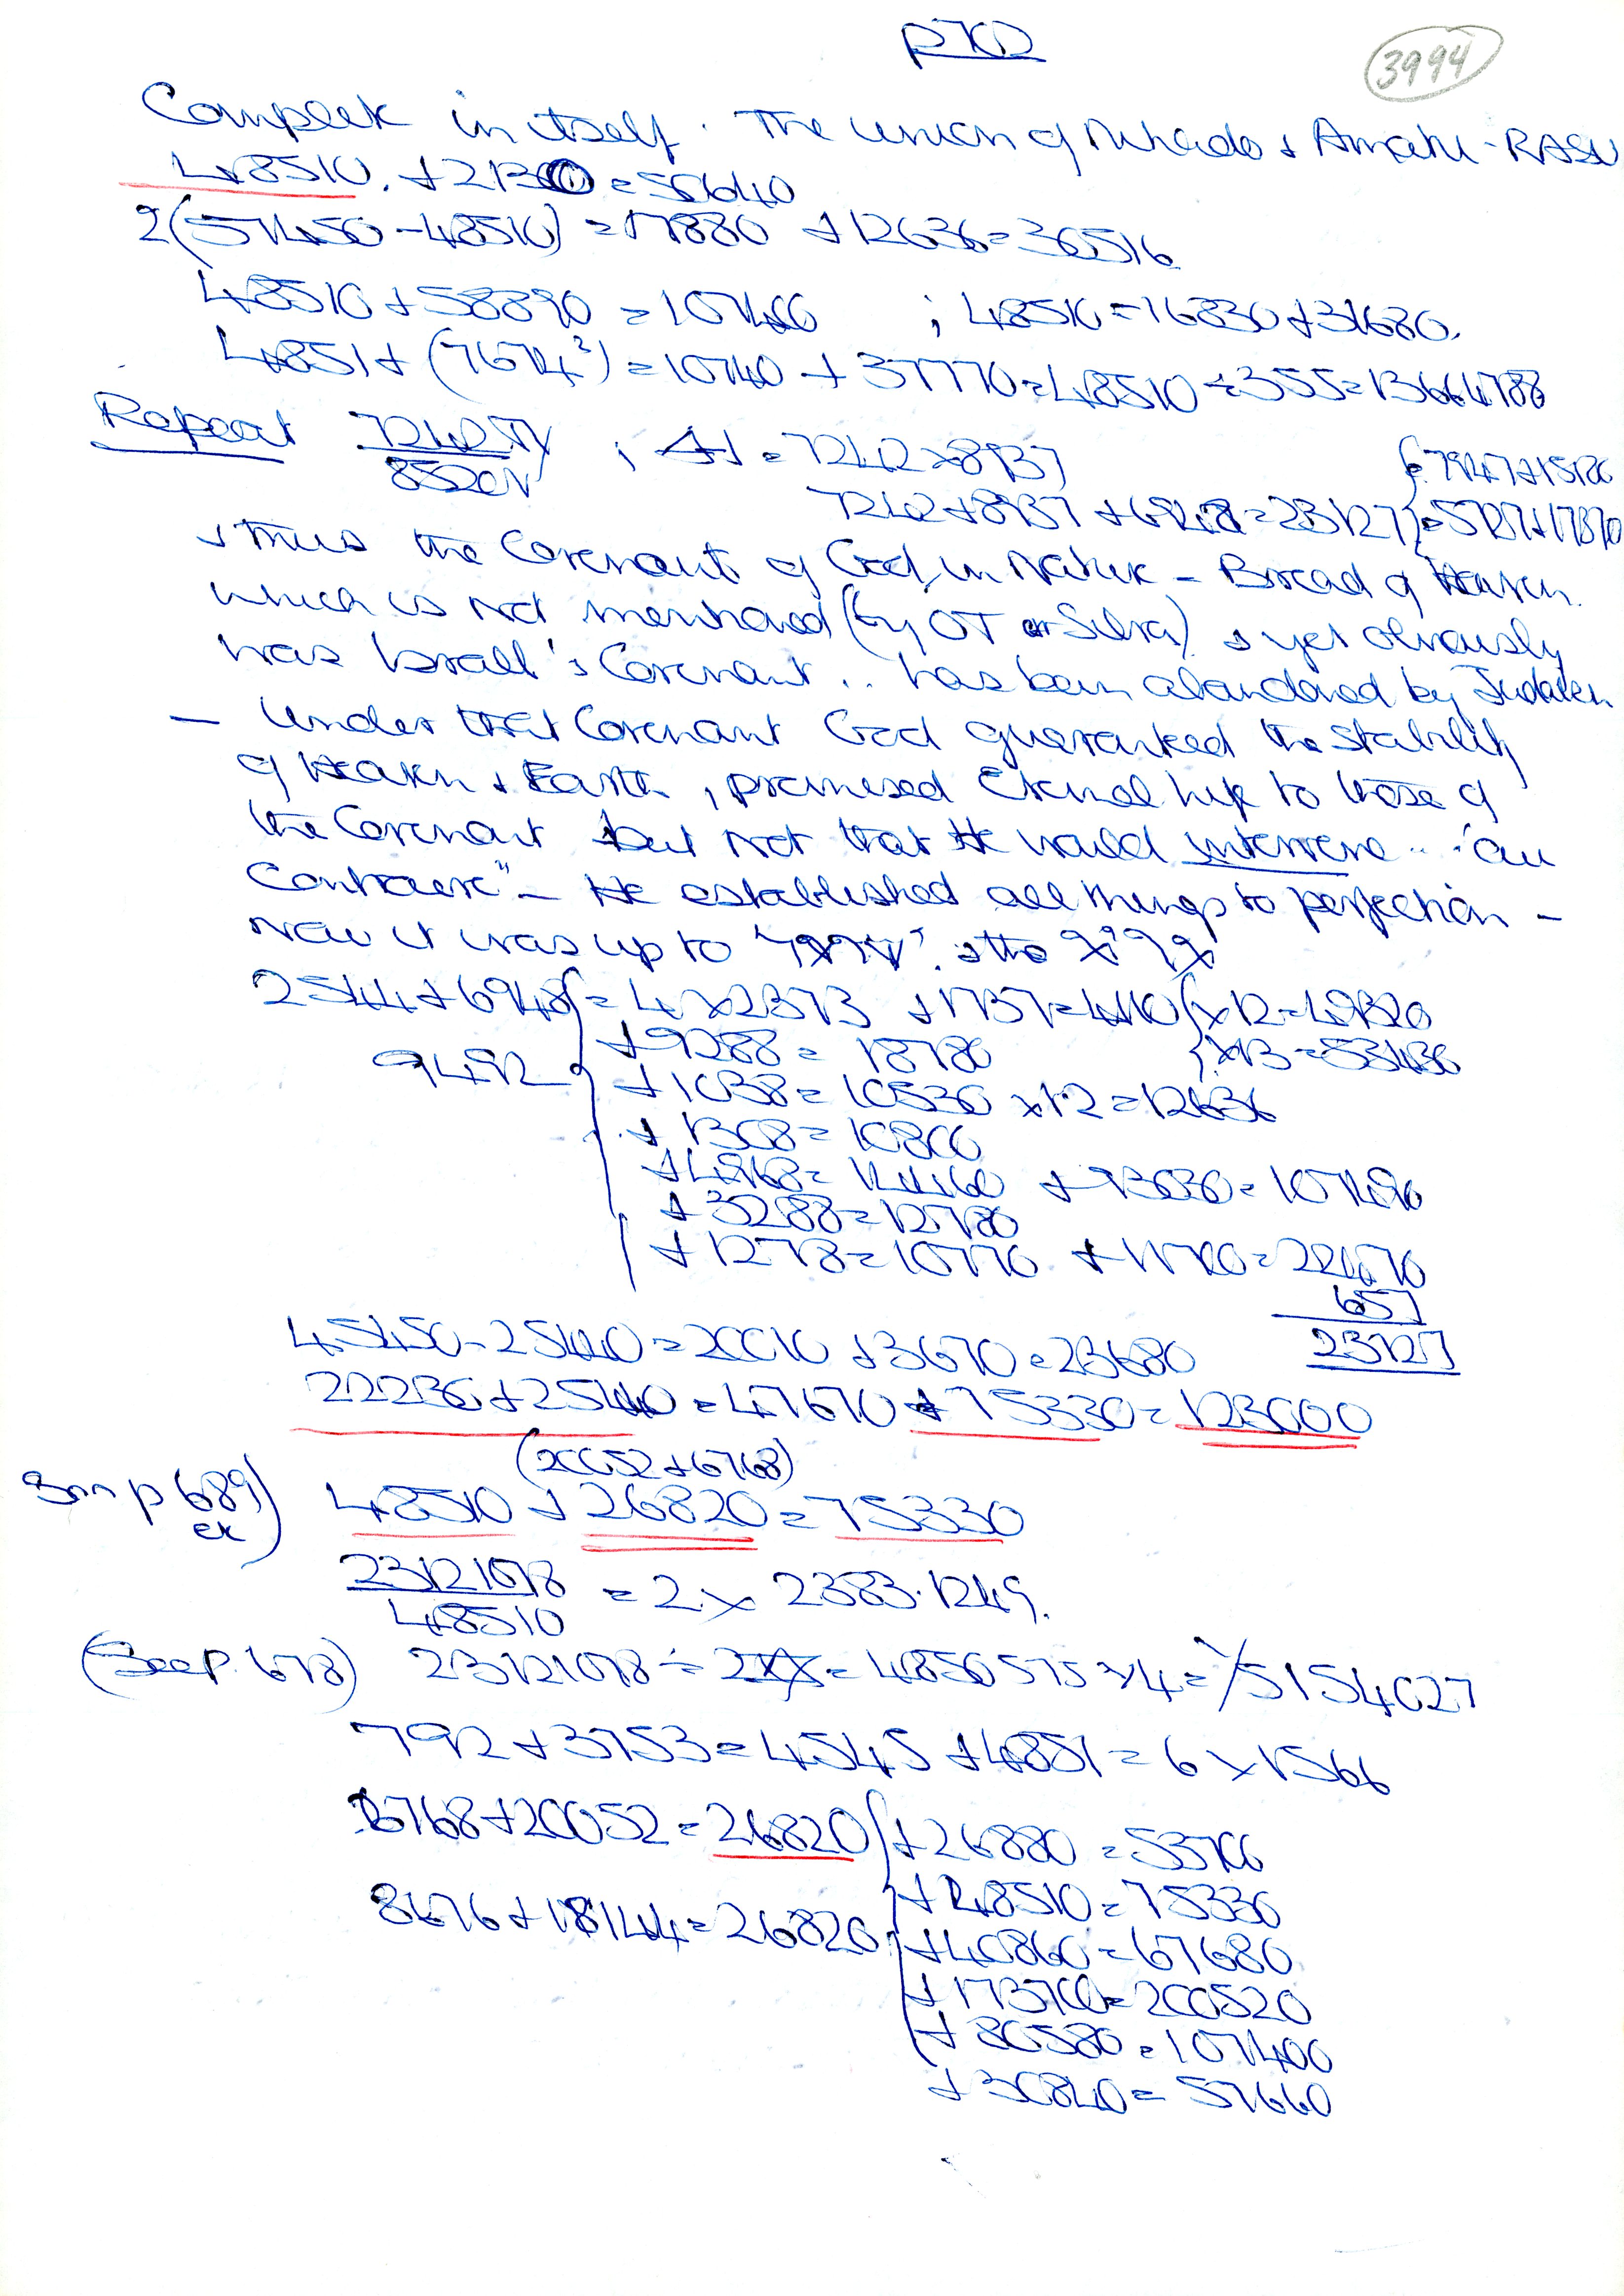 p 702
3994
Complete in itself. The union of & Amaru-RASU
48510. + 2130 = 50640
2(57450 - 48510) = 17880 + 12636 = 30516
48510 + 58890 = 107400 ; 48510 = 16830 + 31680.
4851 + (7674²) = 10740 + 37770 = 48510 ÷ 355 = 13664788
Repeat 7242 / 8520 ; = 7242 × 8937
7242 + 8937 + 6948 = 23127 = 5757 + 17370
& thus the Covenant of God in Nature – Bread of Heaven
which is not mentioned (by OT or Silva) & yet obviously
was Israel's Covenant .. has been abandoned by Judaism
— Under that Covenant God guaranteed the stability
of Heaven & Earth, promised Eternal life to those of
the Covenant but not that He would intervene .. "au
Contraire" – He established all things to perfection –
Now it was up to
2544 + 6948 = 4 × 2373 + 1737 = 4110 × 12 = 49320
× 13 = 53430
9492 + 9288 = 18780
+ 1038 = 10530 × 1.2 = 12636
+ 1308 = 10800
+ 4968 = 14460 + 93030 = 107490
+ 3288 = 12780
+ 1278 = 10770 + 11700 = 22470
657
23127
45450 - 25440 = 20010 + 3670 = 23680
22230 + 25440 = 47670 + 75330 = 123000
(20052 + 6768)
See p 689 ex) 48510 + 26820 = 75330
23121078 / 48510 = 2 × 2383.1249.
(See p. 678) 23121078 ÷ = 4856575 × 4 = 5154027
792 + 3753 = 4545 + 4851 = 6 × 1566
6768 + 20052 = 26820 + 26880 = 53700
+ 48510 = 75330
8676 + 18144 = 26820 + 40860 = 67680
+ 173700 = 200520
+ 80580 = 107400
+ 30840 = 57660